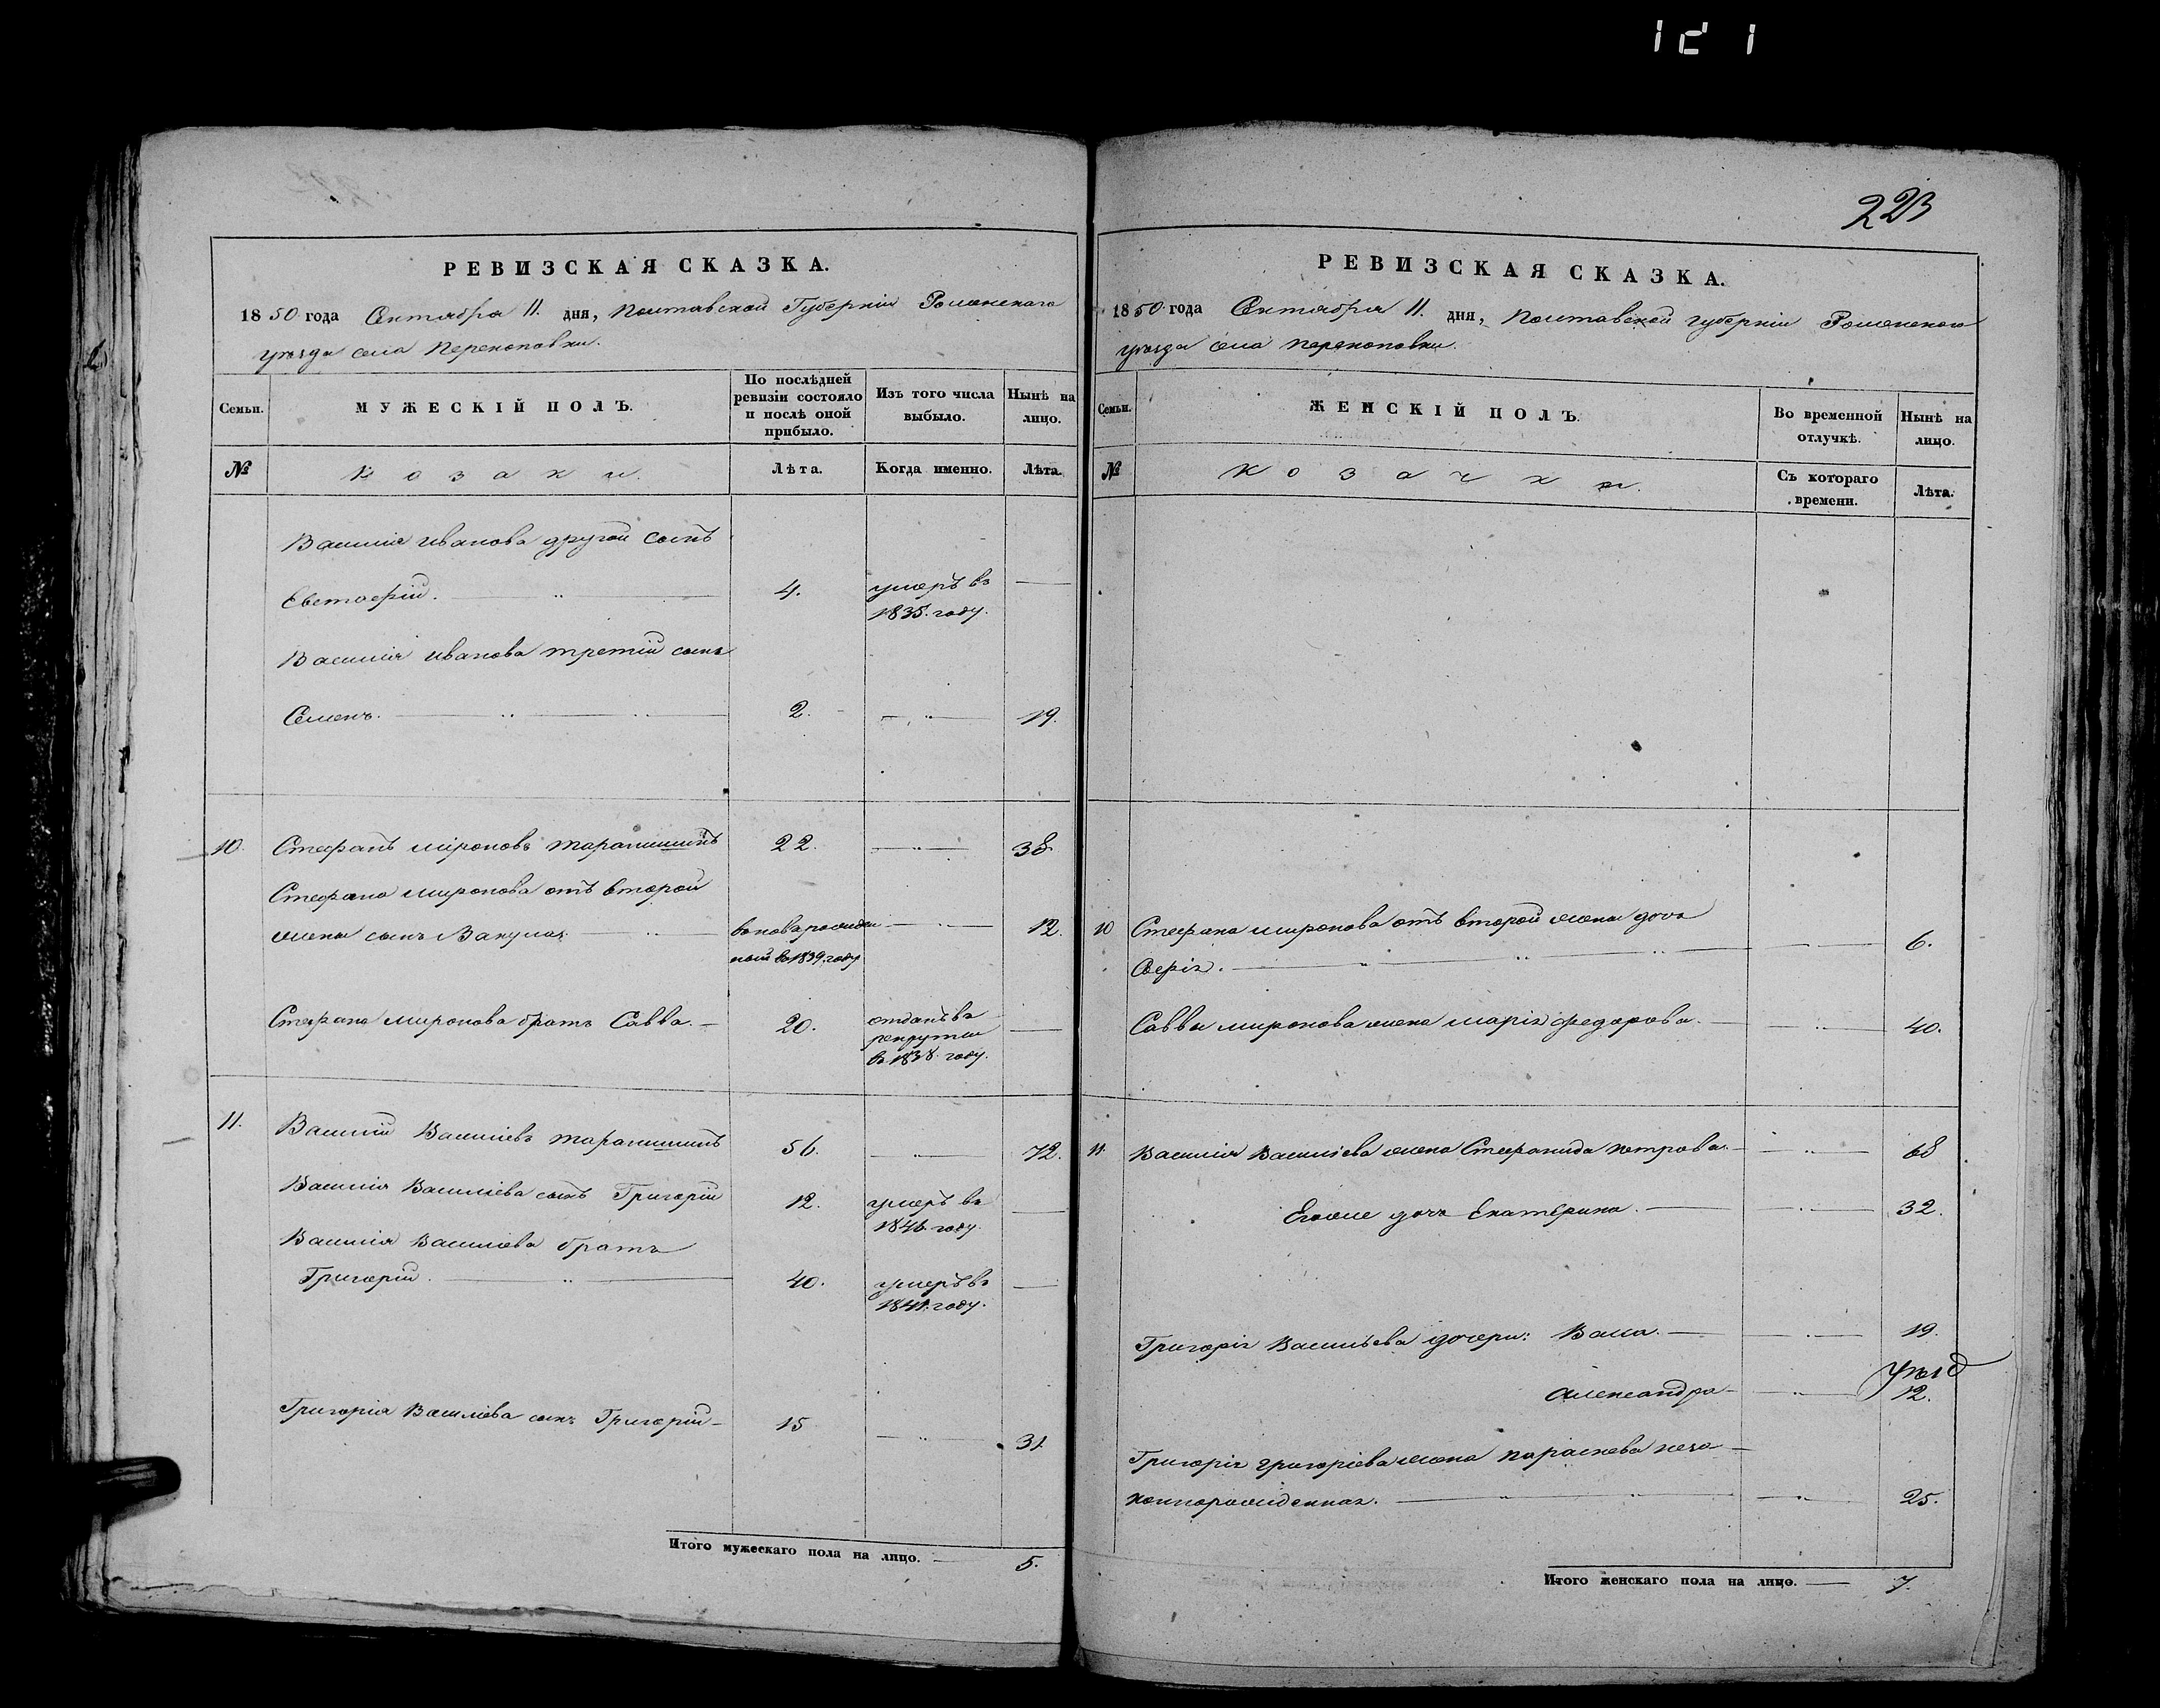 121
223
РЕВИЗСКАЯ СКАЗКА.
1850 года Октября 11. дня, Полтавской Губерніи Роменскаго
уѣзда села Перекоповки.
Семьи.
МУЖЕСКІЙ ПОЛЪ.
По послѣдней ревизіи состояло и послѣ оной прибыло.
Изъ того числа выбыло.
Нынѣ на лицо.
№
Козаки.
Лѣта.
Когда именно.
Лѣта.
Василія Иванова другой сынъ
Евстафій. 4. умеръ въ
1835. году.
Василія Иванова третій сынъ
Семенъ. 2. 19.
10. Стефанъ Мироновъ 22. 38
Стефана Миронова отъ второй
жены сынъ Вакула вновь рожден 12.
ный въ 1839. году
Стефана Миронова братъ Савва. 20. отданъ въ
рекруты
въ 1838. году.
11. Василій Васильевъ 56. 72.
Василія Васильева сынъ Григорій 12. умеръ въ
1846. году.
Василія Васильева братъ
Григорій. 40. умеръ въ
1841. году.
Григорія Васильева сынъ Григорій 15 31
Итого мужескаго пола на лицо. 5.
РЕВИЗСКАЯ СКАЗКА.
1850 года Октября 11. дня, Полтавской губерніи Роменскаго
уѣзда села Перекоповки.
Семьи.
ЖЕНСКІЙ ПОЛЪ.
Во временной отлучкѣ.
Нынѣ на лицо.
№
Козачки.
Съ котораго времени.
Лѣта.
10 Стефана Миронова отъ второй жены дочь
6.
Саввы Миронова жена Марія Федорова. 40.
11 Василія Васильева жена Стефанида Петрова. 68
Егоже дочь Екатерина. 32.
Григорія Васильева дочери: 19.
Александра 12.
Григорія Григоріева жена Параскева неза
коннорожденная. 25.
Итого женскаго пола на лицо. 7.